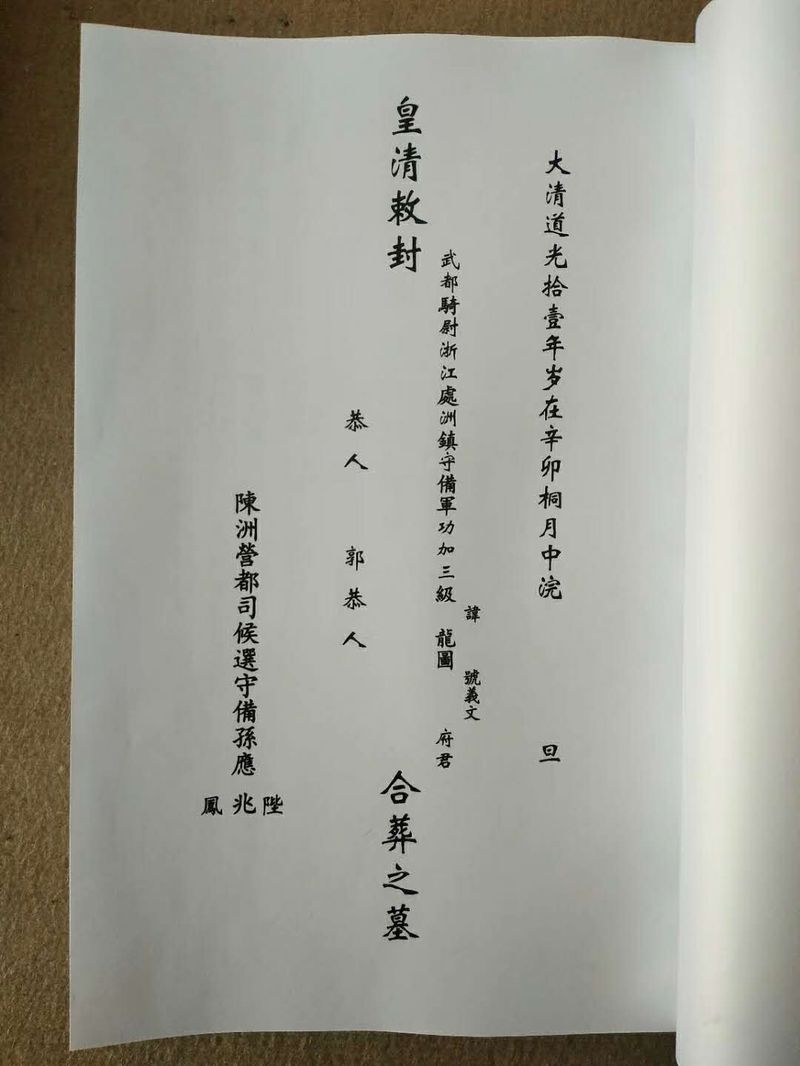 大清道光拾壹年岁在辛卯桐月中浣 旦
皇清敕封
武都騎尉浙江處洲鎮守備軍功加三級 諱龍圖 號義文 府君
恭人 郭恭人
合葬之墓
陳洲營都司候選守備孫應
陛
兆
鳳